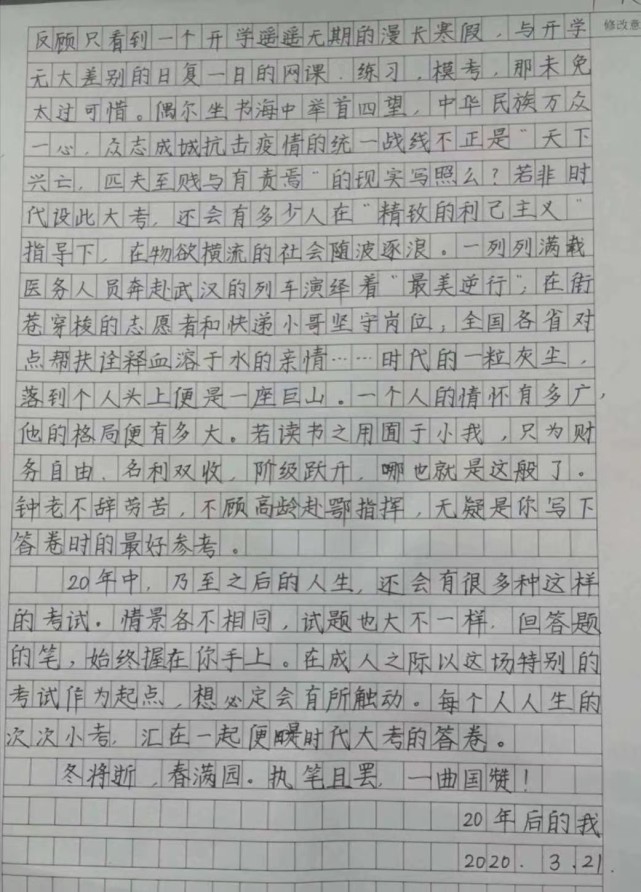 修改意
反顾只看到一个开学遥遥无期的漫长寒假，与开学
无大差别的日复一日的网课．练习．模考，那未免
太过可惜。偶尔坐书海中举首四望，中华民族万众
一心，众志成城抗击疫情的统一战线不正是“天下
兴亡，匹夫至贱与有责焉”的现实写照么？若非时
代设此大考，还会有多少人在“精致的利己主义”
指导下，在物欲横流的社会随波逐浪。一列列满载
医务人员奔赴武汉的列车演绎着“最美逆行”；在街
巷穿梭的志愿者和快递小哥坚守岗位，全国各省对
点帮扶诠释血溶于水的亲情……时代的一粒灰尘，
落到个人头上便是一座巨山。一个人的情怀有多广，
他的格局便有多大。若读书之用囿于小我，只为财
务自由．名利双收，阶级跃升，哪也就是这般了。
钟老不辞劳苦，不顾高龄赴鄂指挥，无疑是你写下
答卷时的最好参考。
20年中，乃至之后的人生，还会有很多种这样
的考试。情景各不相同，试题也大不一样，但答题
的笔，始终握在你手上。在成人之际以这场特别的
考试作为起点，想必定会有所触动。每个人人生的
次次小考，汇在一起便是时代大考的答卷。
冬将逝，春满园。执笔且罢，一曲国赞！
20年后的我
2020．3．21